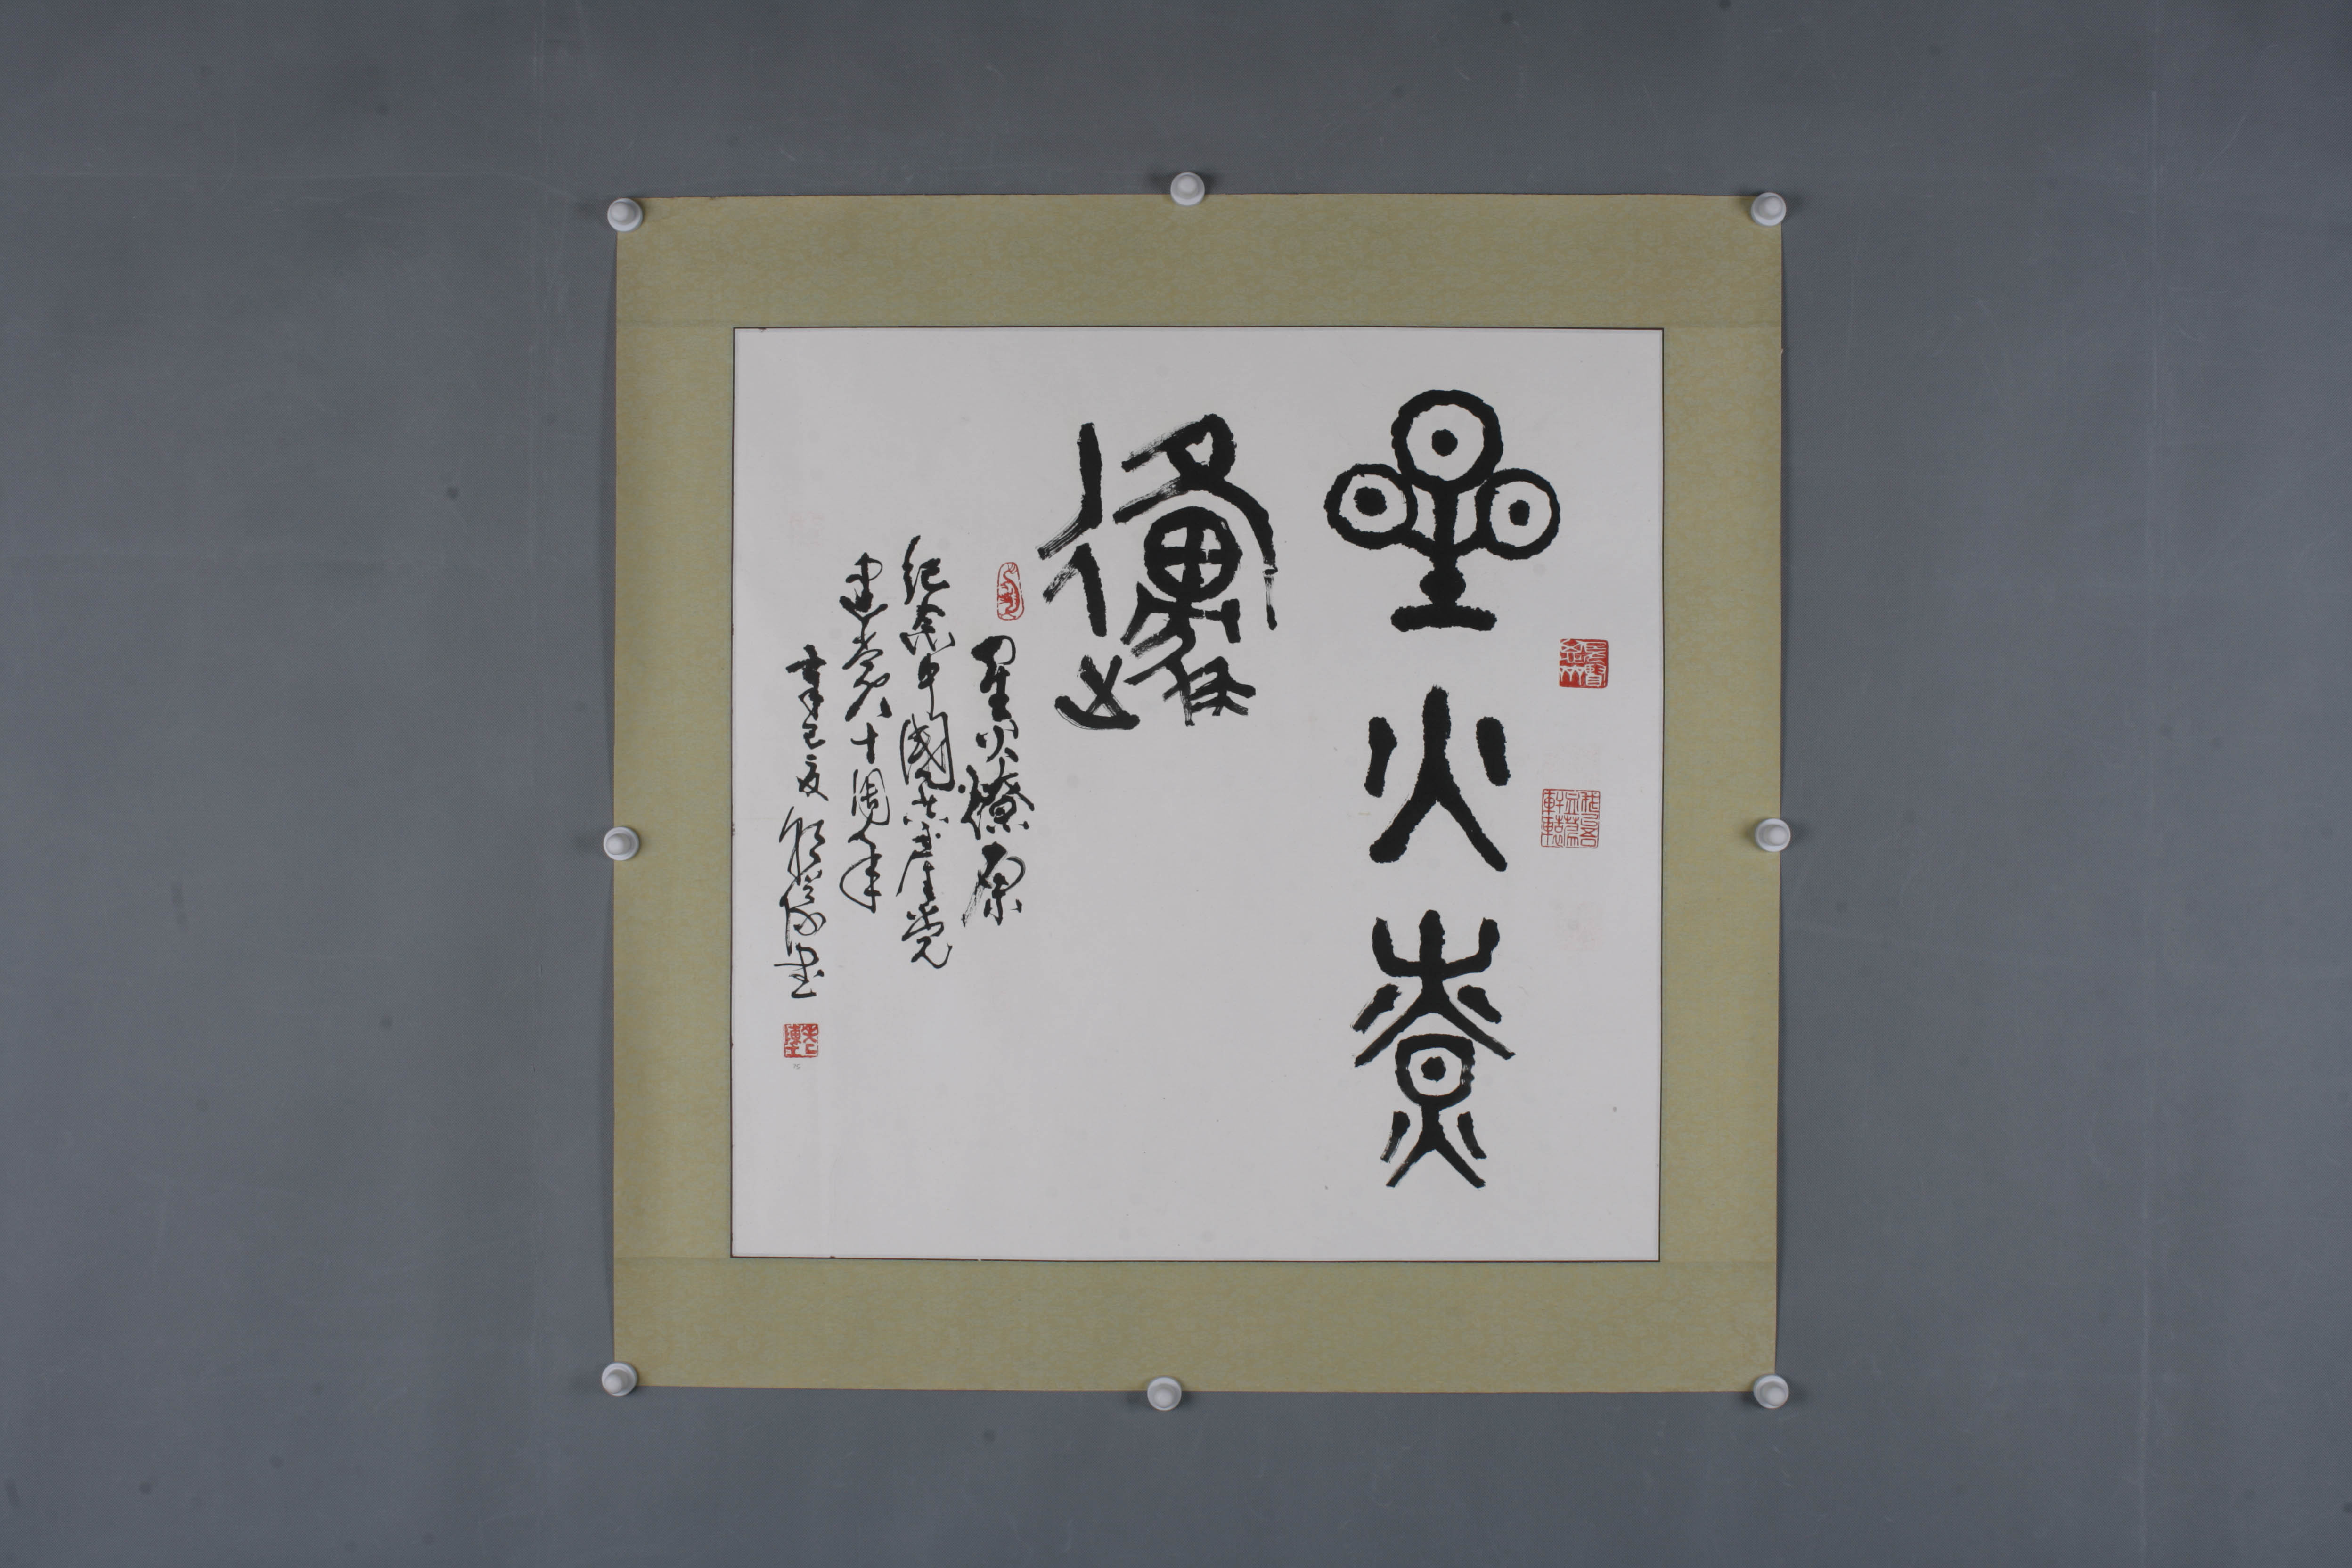 星火燎
原
星火燎原
纪念中國共产党
建党八十周年
辛巳夏
书